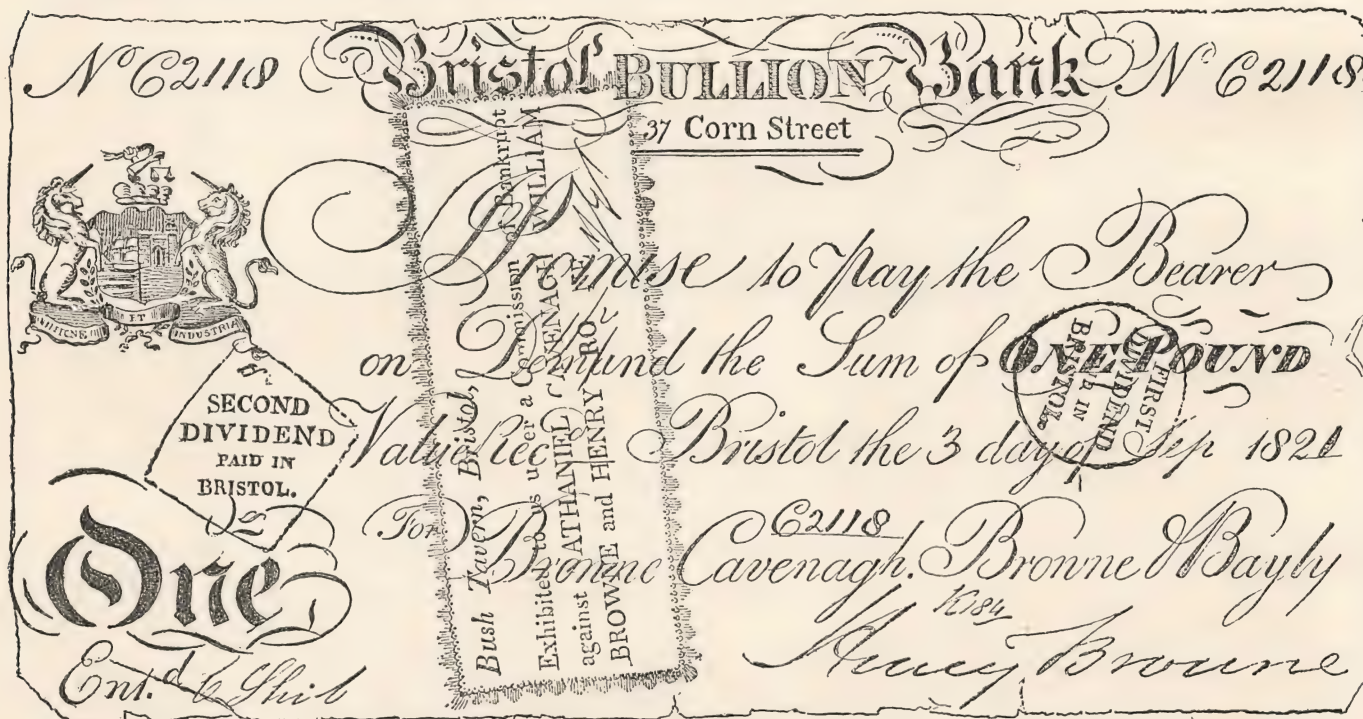 No C2118 Bristol BULLION Bank No C2118
37 Corn Street
I Promise to Pay the Bearer
on Demand the Sum of ONE POUND
Value Rec Bristol the 3 day of Sep 1821
For Browne Cavenagh. Browne & Bayly
C2118
K184
Henry Browne
One
Ent.d
ET
INDUSTRIA
SECOND
DIVIDEND
PAID IN
BRISTOL.
FIRST
DIVIDEND
IN
BRISTOL.
Bush Tavern, Bristol,
Exhibited to us under a Commission of Bankrupt
against NATHANIEL CAVENAGH WILLIAM
BROWNE and HENRY BROWNE